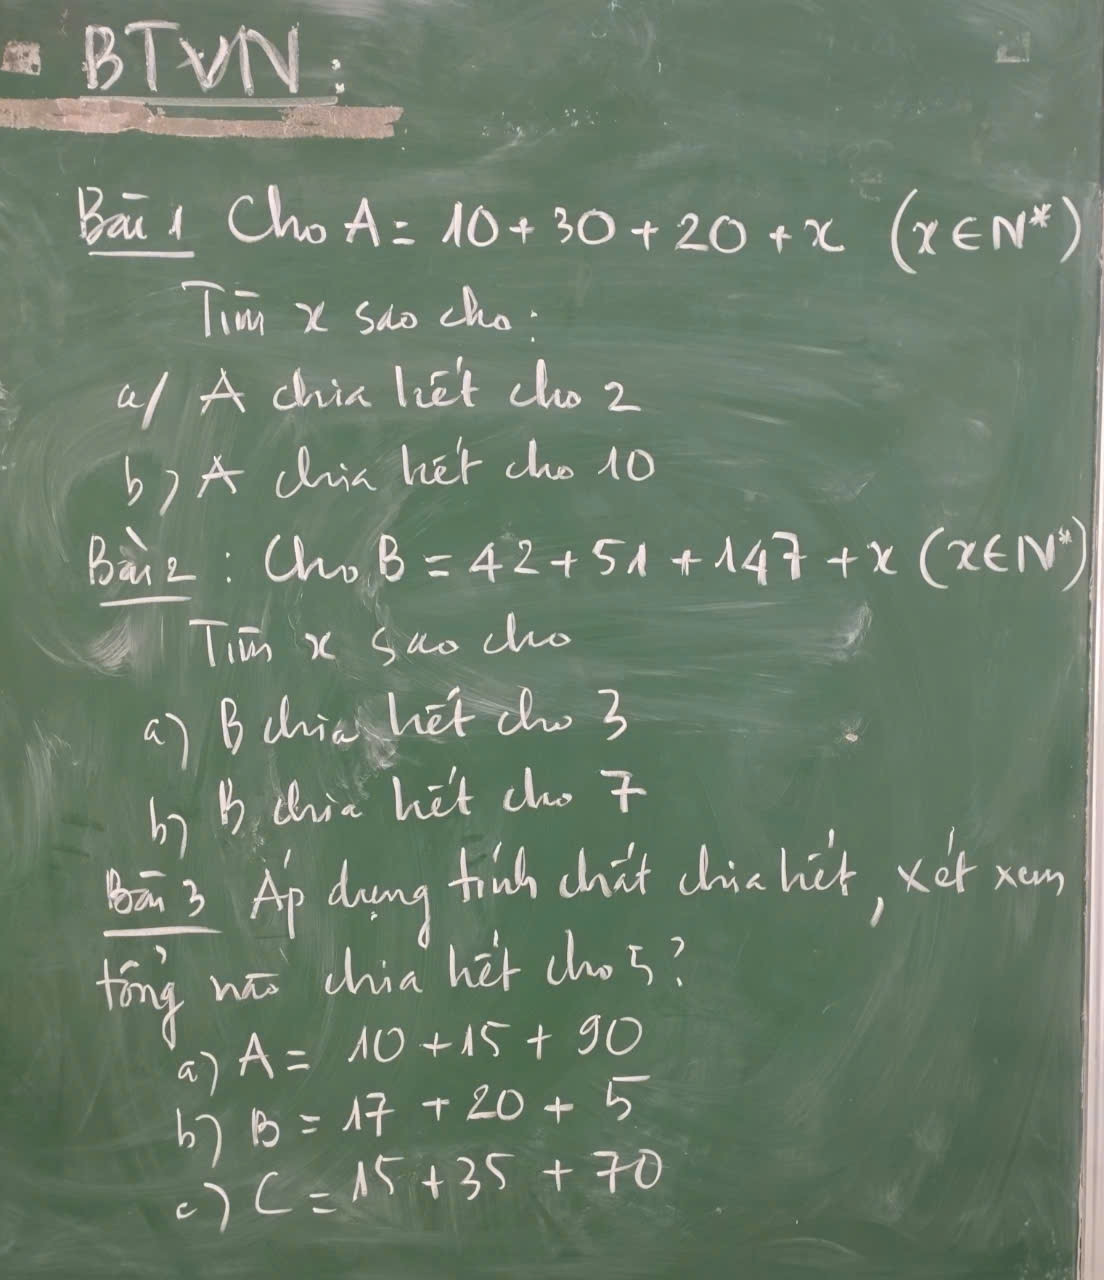 BTVN:
Bài 1 Cho A = 10 + 30 + 20 + x (x ∈ N*)
Tìm x sao cho:
a/ A chia hết cho 2
b) A chia hết cho 10
Bài 2: Cho B = 42 + 51 + 147 + x (x ∈ N*)
Tìm x sao cho
a) B chia hết cho 3
b) B chia hết cho 7
Bài 3 Áp dụng tính chất chia hết, xét xem
tổng nào chia hết cho 5?
a) A = 10 + 15 + 90
b) B = 17 + 20 + 5
c) C = 15 + 35 + 70